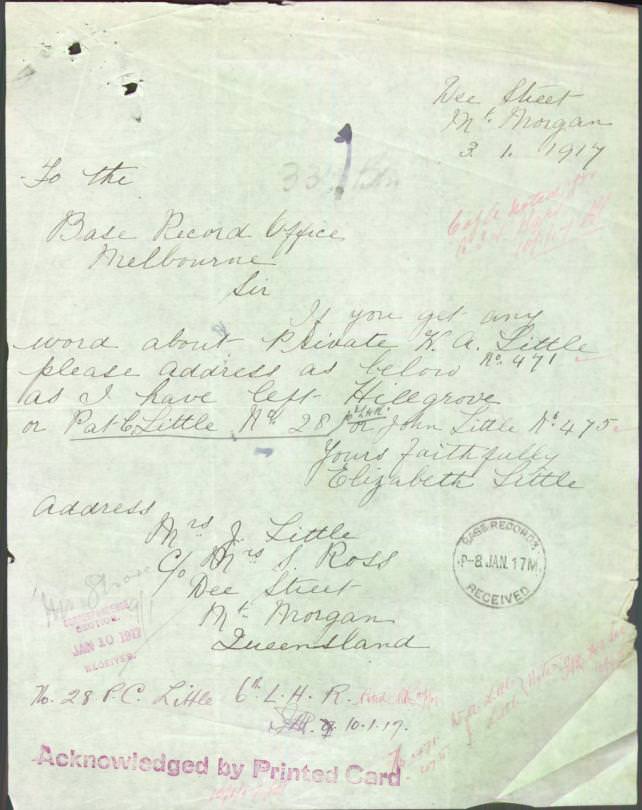 Dee Street
Mt. Morgan
3. 1. 1917
To the
33 Btn
Base Record Office
Melbourne
Sir
If you get any
word about Private K. A. Little
No. 471
please address as below
as I have left Hillgrove
or Pat C Little No. 28 or John Little No. 475
6th LHR
Yours Faithfully
Elizabeth Little
Address
Mrs J. Little
C/o Mrs S. Ross
Dee Street
Mt. Morgan
Queensland
BASE RECORDS
P-8 JAN. 17M
RECEIVED
CORRESPONDENCE
SECTION.
JAN 10 1917
RECEIVED.
No. 28 P.C. Little 6th L.H.R.
10.1.17.
Acknowledged by Printed Card